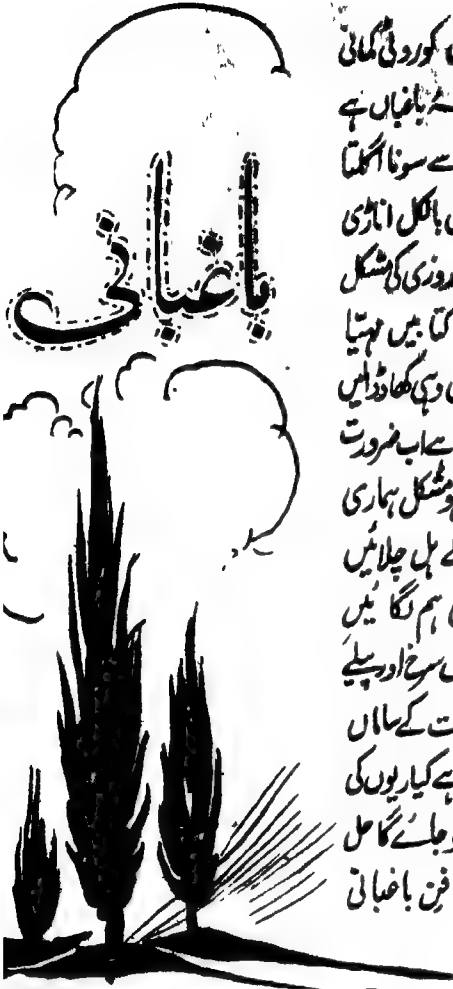 باغبانی
کو روٹی کمانی
باغباں ہے
سے سونا اگلتا
بالکل اناڑی
روزی کی مشکل
کتابیں مہیّا
وہی کھاد ڈالیں
سے اب ضرورت
مشکل ہماری
ہل چلائیں
ہم لگائیں
سرخ اور پیلے
کے ساماں
ہے کیاریوں کی
جائے گا حل
فنِ باغبانی